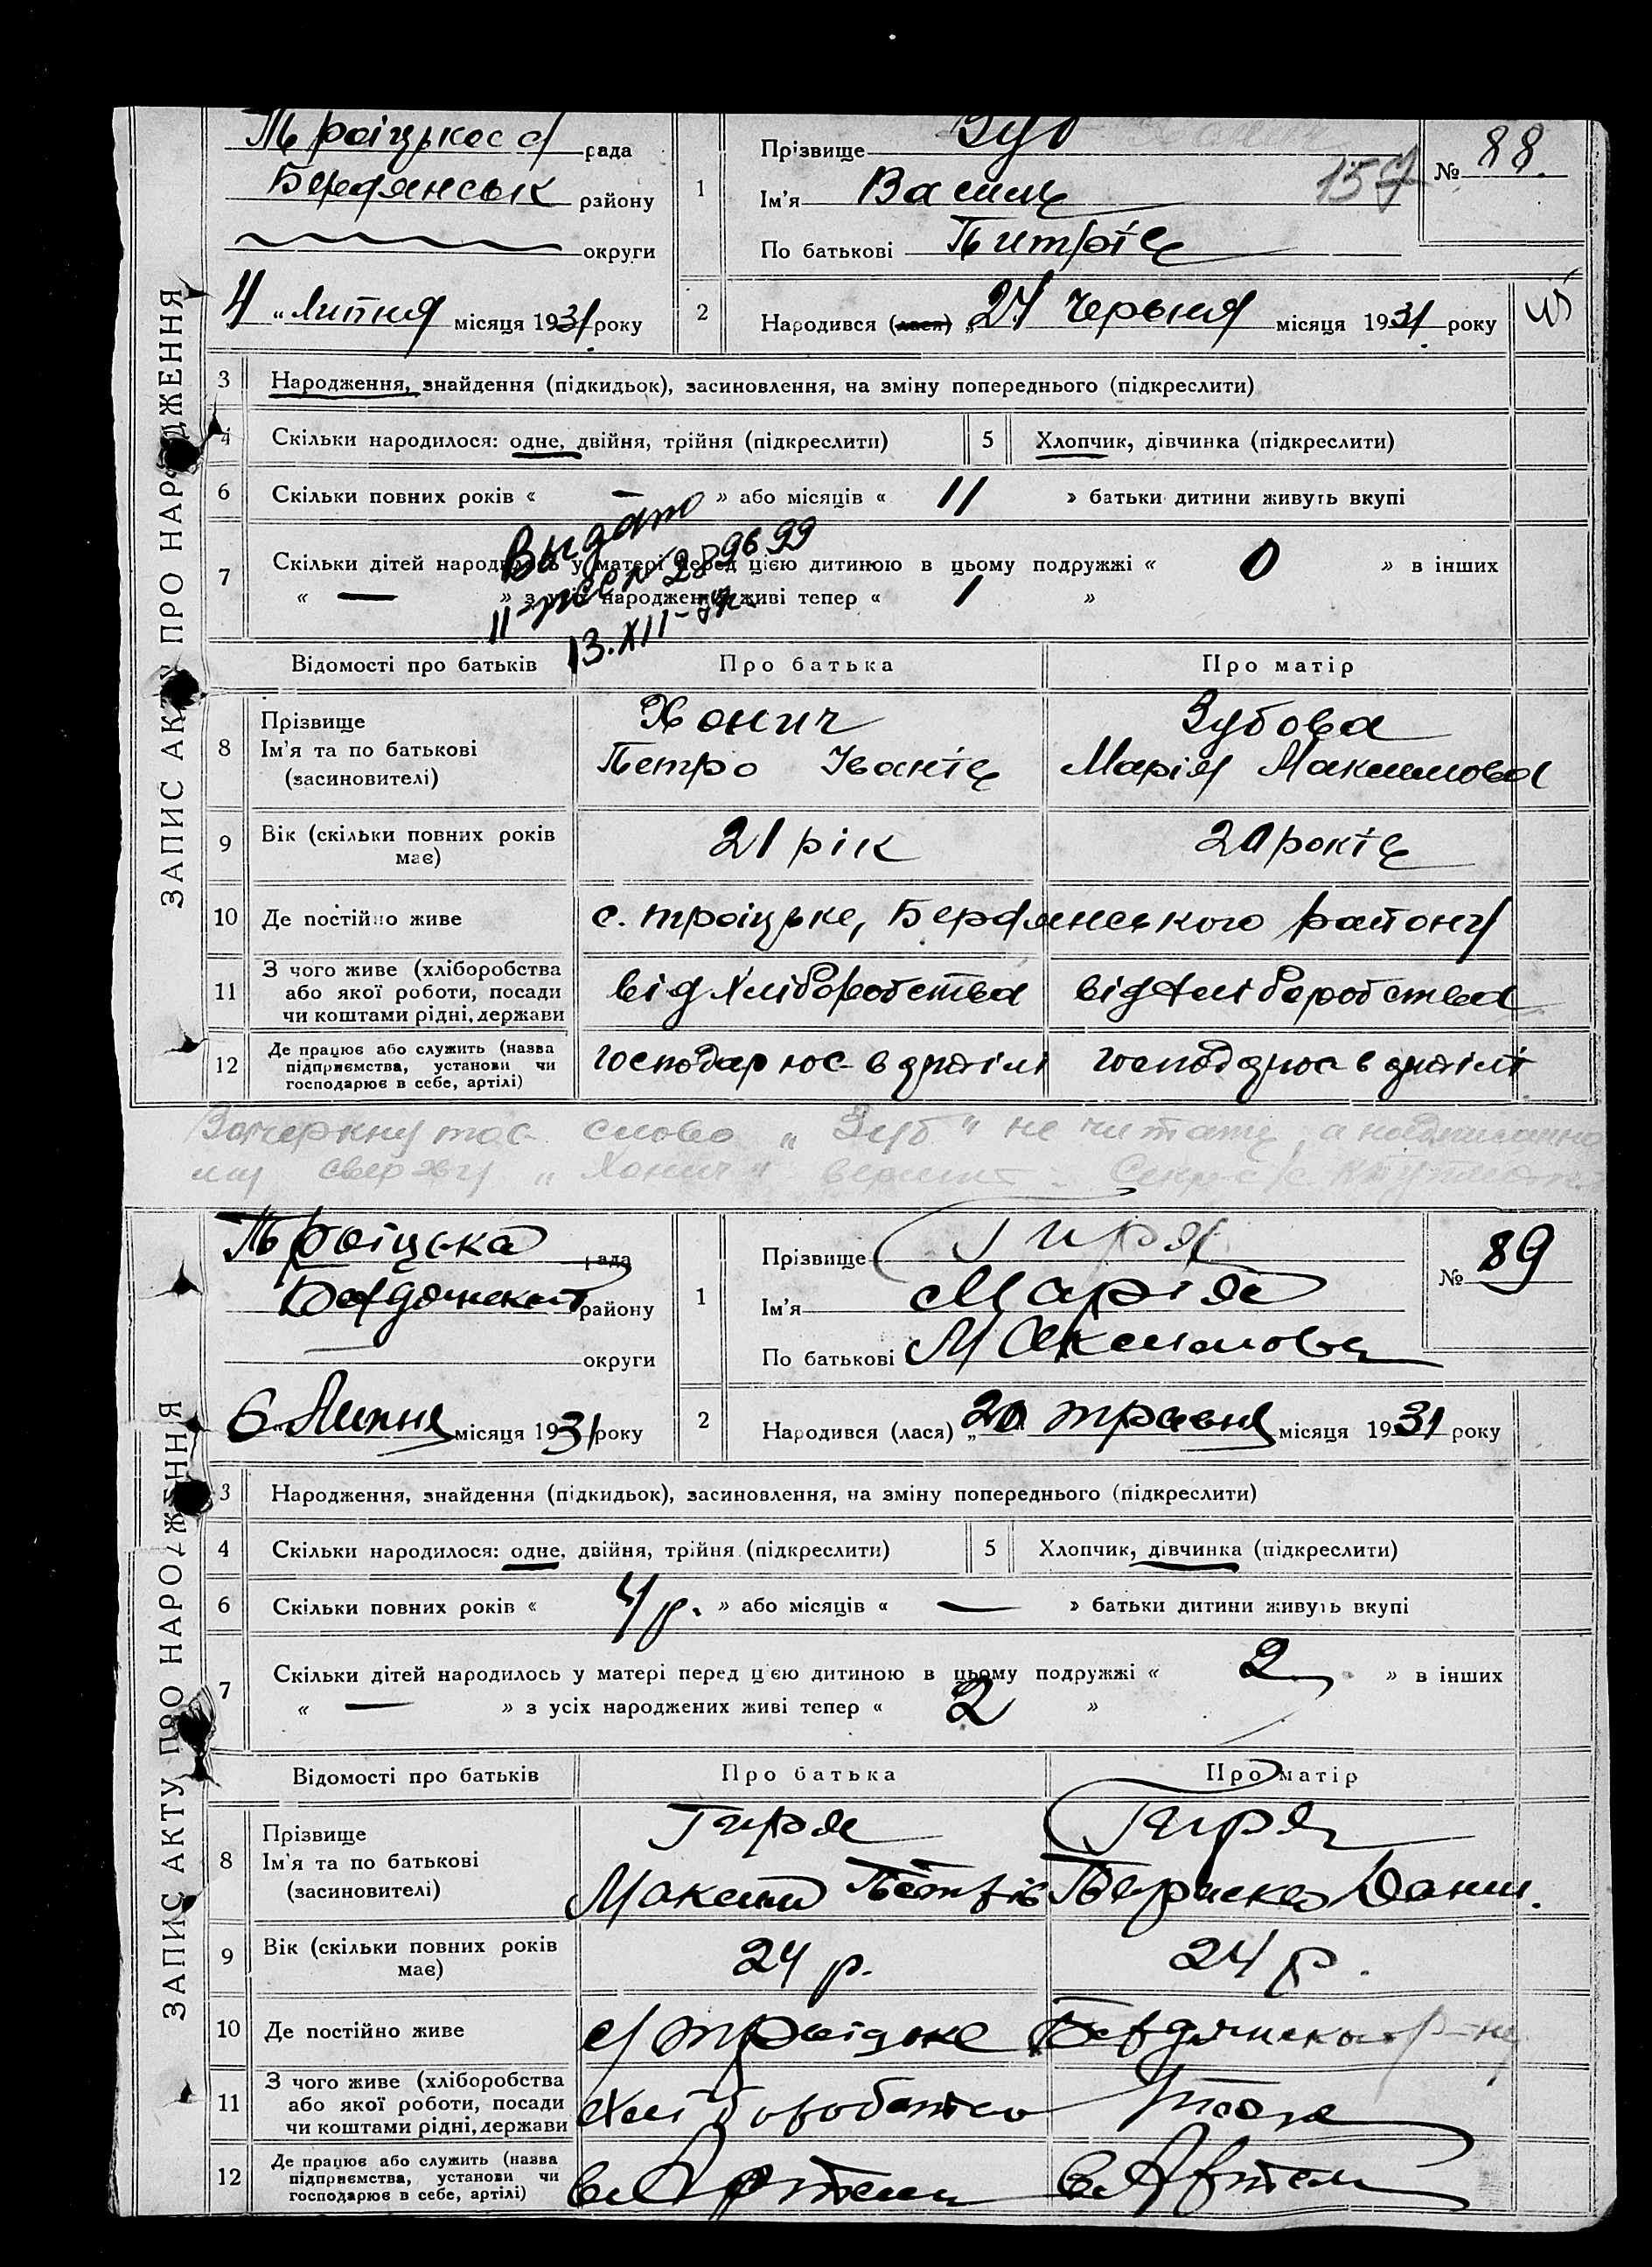 ЗАПИС АКТУ ПРО НАРОДЖЕННЯ
Троіцька с/ рада
Бердянськ району
округи
4 „ Липня місяця 1931 року
1 Прізвище Зуб Хонич
Ім'я Василь 157
По батькові Питрів
№ 88.
2 Народився (лася) „ червня місяця 1931 року
3 Народження, знайдення (підкидьок), засиновлення, на зміну попереднього (підкреслити)
4 Скільки народилося: одне, двійня, трійня (підкреслити) 5 Хлопчик, дівчинка (підкреслити)
6 Скільки повних років « — » або місяців « 11 » батьки дитини живуть вкупі
7 Скільки дітей народилось у матері перед цією дитиною в цьому подружжі « 0 » в інших
« — » з усіх народжених живі тепер « 1 »
Выдано
13.XII-
Відомості про батьків Про батька Про матір
8 Прізвище Хонич Зубова
Ім'я та по батькові Петро Іванів Марія Максимова
(засиновителі)
9 Вік (скільки повних років має) 21 рік 20 років
10 Де постійно живе с. Троіцьке, Бердянського району
11 З чого живе (хліборобства або якої роботи, посади чи коштами рідні, держави від хліборобства від хліборобства
12 Де працює або служить (назва підприємства, установи чи господарює в себе, артілі) господарює в артілі господарює в артілі
Зачеркнутое слово „Зуб" не читать, а надписанно
му сверху „Хонич" верить.
ЗАПИС АКТУ ПРО НАРОДЖЕННЯ
Троіцька рада
Бердянський району
округи
6 „ Липня місяця 1931 року
1 Прізвище Гиря
Ім'я Марія
По батькові Максимова
№ 89
2 Народився (лася) „20 травня місяця 1931 року
3 Народження, знайдення (підкидьок), засиновлення, на зміну попереднього (підкреслити)
4 Скільки народилося: одне, двійня, трійня (підкреслити) 5 Хлопчик, дівчинка (підкреслити)
6 Скільки повних років « 4 р. » або місяців « — » батьки дитини живуть вкупі
7 Скільки дітей народилось у матері перед цією дитиною в цьому подружжі « 2 » в інших
« — » з усіх народжених живі тепер « 2 »
Відомості про батьків Про батька Про матір
8 Прізвище Гиря Гиря
Ім'я та по батькові Максим Петрів Параска Данил.
(засиновителі)
9 Вік (скільки повних років має) 24 р. 24 р.
10 Де постійно живе с/ Троіцьке Бердянського р-ну
11 З чого живе (хліборобства або якої роботи, посади чи коштами рідні, держави Хліборобство тоже
12 Де працює або служить (назва підприємства, установи чи господарює в себе, артілі) в Артели в Артели